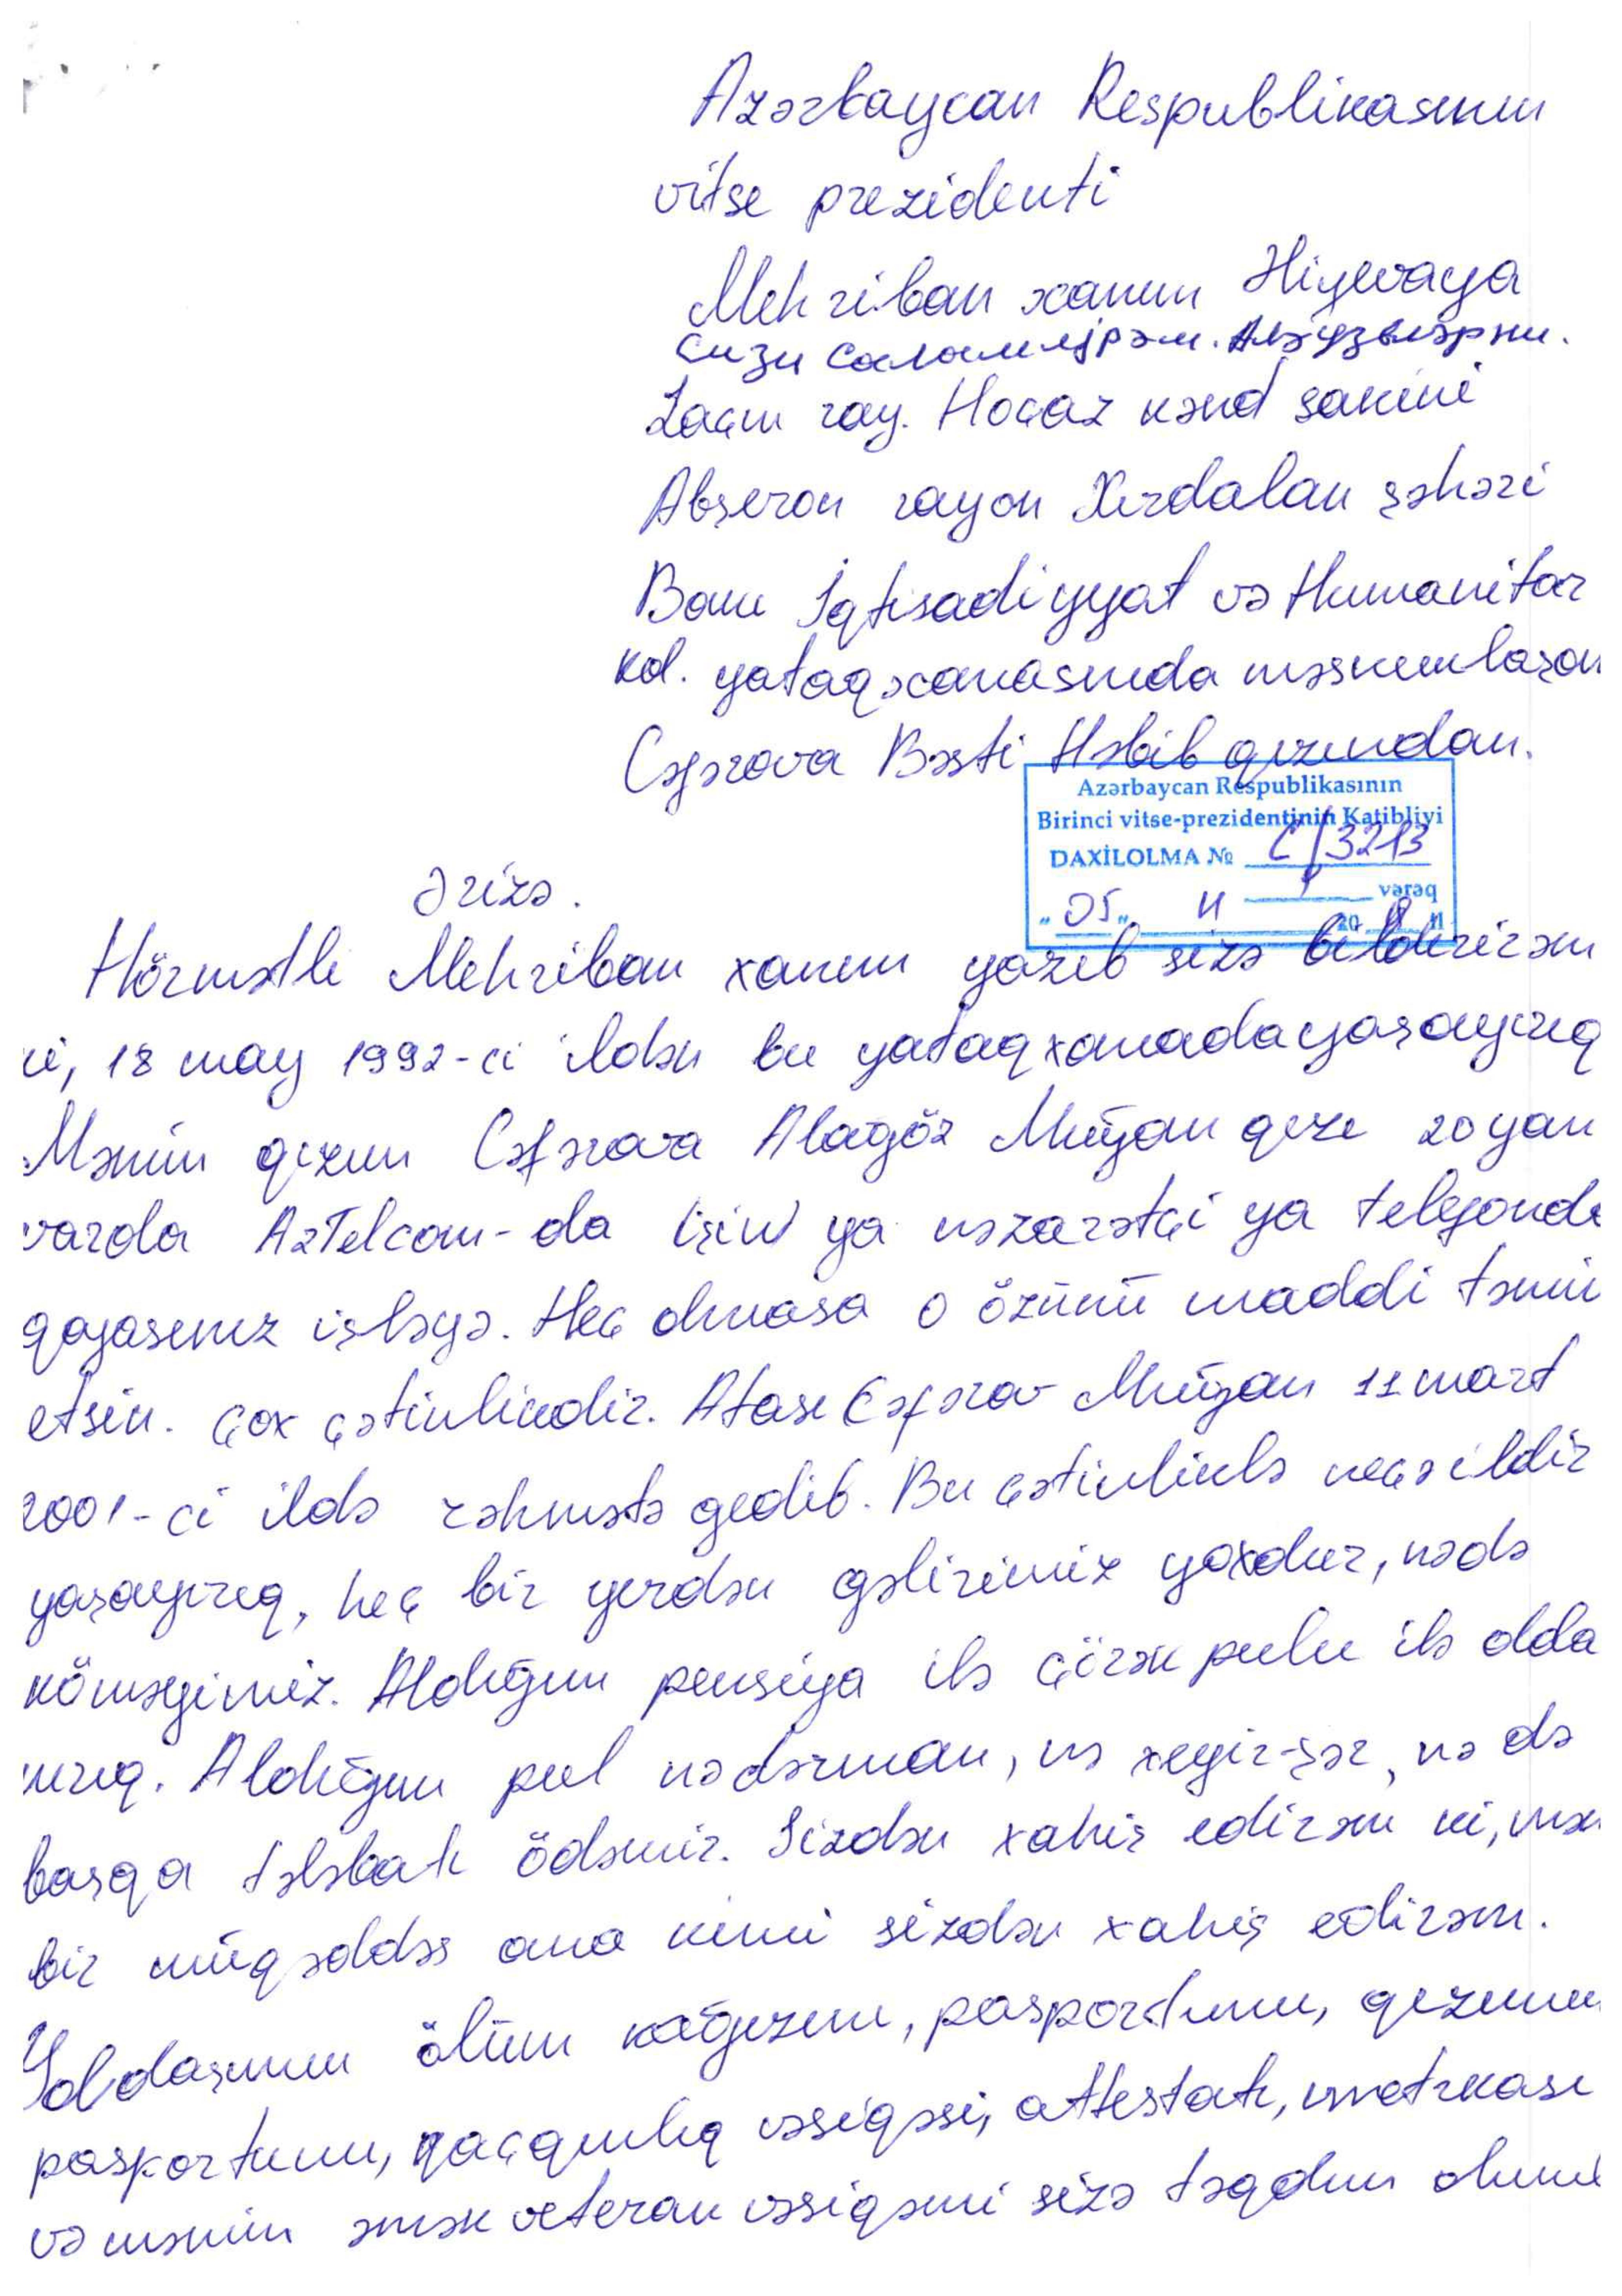 Azərbaycan Respublikasının
vitse prezidenti
Mehriban xanım Əliyevaya
Сизи Саламлејрәм.
Laçın ray. Hocaz kənd sakini
Abşeron rayon Xırdalan şəhəri
Bakı İqtisadiyyat və Humanitar
Kol. yataqxanasında məskunlaşan
Cəfərova Bəsti Həbib qızından.
Azərbaycan Respublikasının
Birinci vitse-prezidentinin Katibliyi
DAXİLOLMA № C/3213
vərəq
"05" 11 2018 il
Ərizə.
Hörmətli Mehriban xanım yazıb sizə bildirirəm
ki, 18 may 1992-ci ildən bu yataqxanada yaşayırıq
Mənim qızım Cəfərova Alagöz Muğan qızı 20 yan
varda AzTelcom-da işin ya nəzarətçi ya telefonda
qoyasınız işləyə. Heç olmasa o özünü maddi təmin
etsin. Çox çətinlikdir. Atası Cəfərov Muğan 11 mart
2001-ci ildə rəhmətə gedib. Bu çətinliklə neçə ildir
yaşayırıq, heç bir yerdən gəlirimiz yoxdur, nədə
köməyimiz. Aldığım pensiya ilə çörək pulu ilə dolda
nırıq. Aldığım pul nə dərman, nə xeyir-şər, nə də
başqa tələbatı ödəmir. Sizdən xahiş edirəm ki, mən
bir müqəddəs ana kimi sizdən xahiş edirəm.
Yoldaşımın ölüm kağızını, pasportumu, qızımın
pasportunu, qaçqınlıq vəsiqəsi, attestatı, metrkası
və mənim əmək veteran vəsiqəmi sizə təqdim olunu